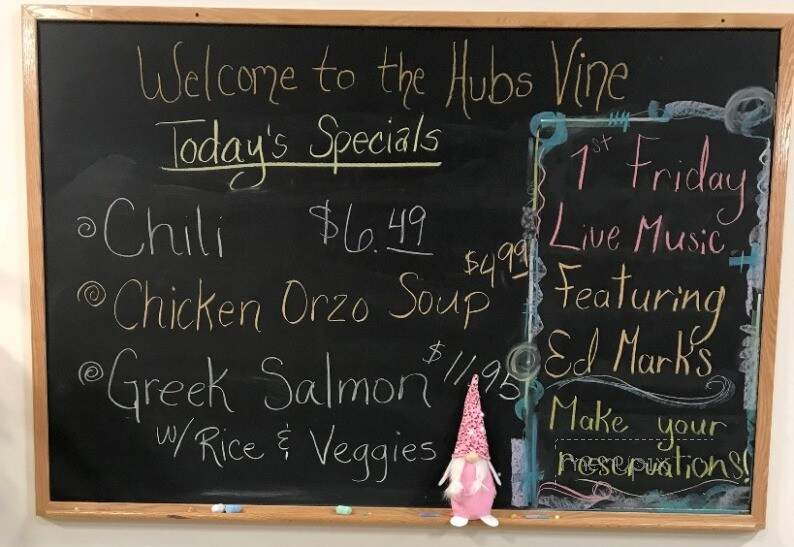 Welcome to the Hubs Vine
Today's Specials
Chili $6.49
Chicken Orzo Soup $4.99
Greek Salmon $11.95
w/ Rice & Veggies
1st Friday
Live Music
Featuring
Ed Marks
Make your
reservations!